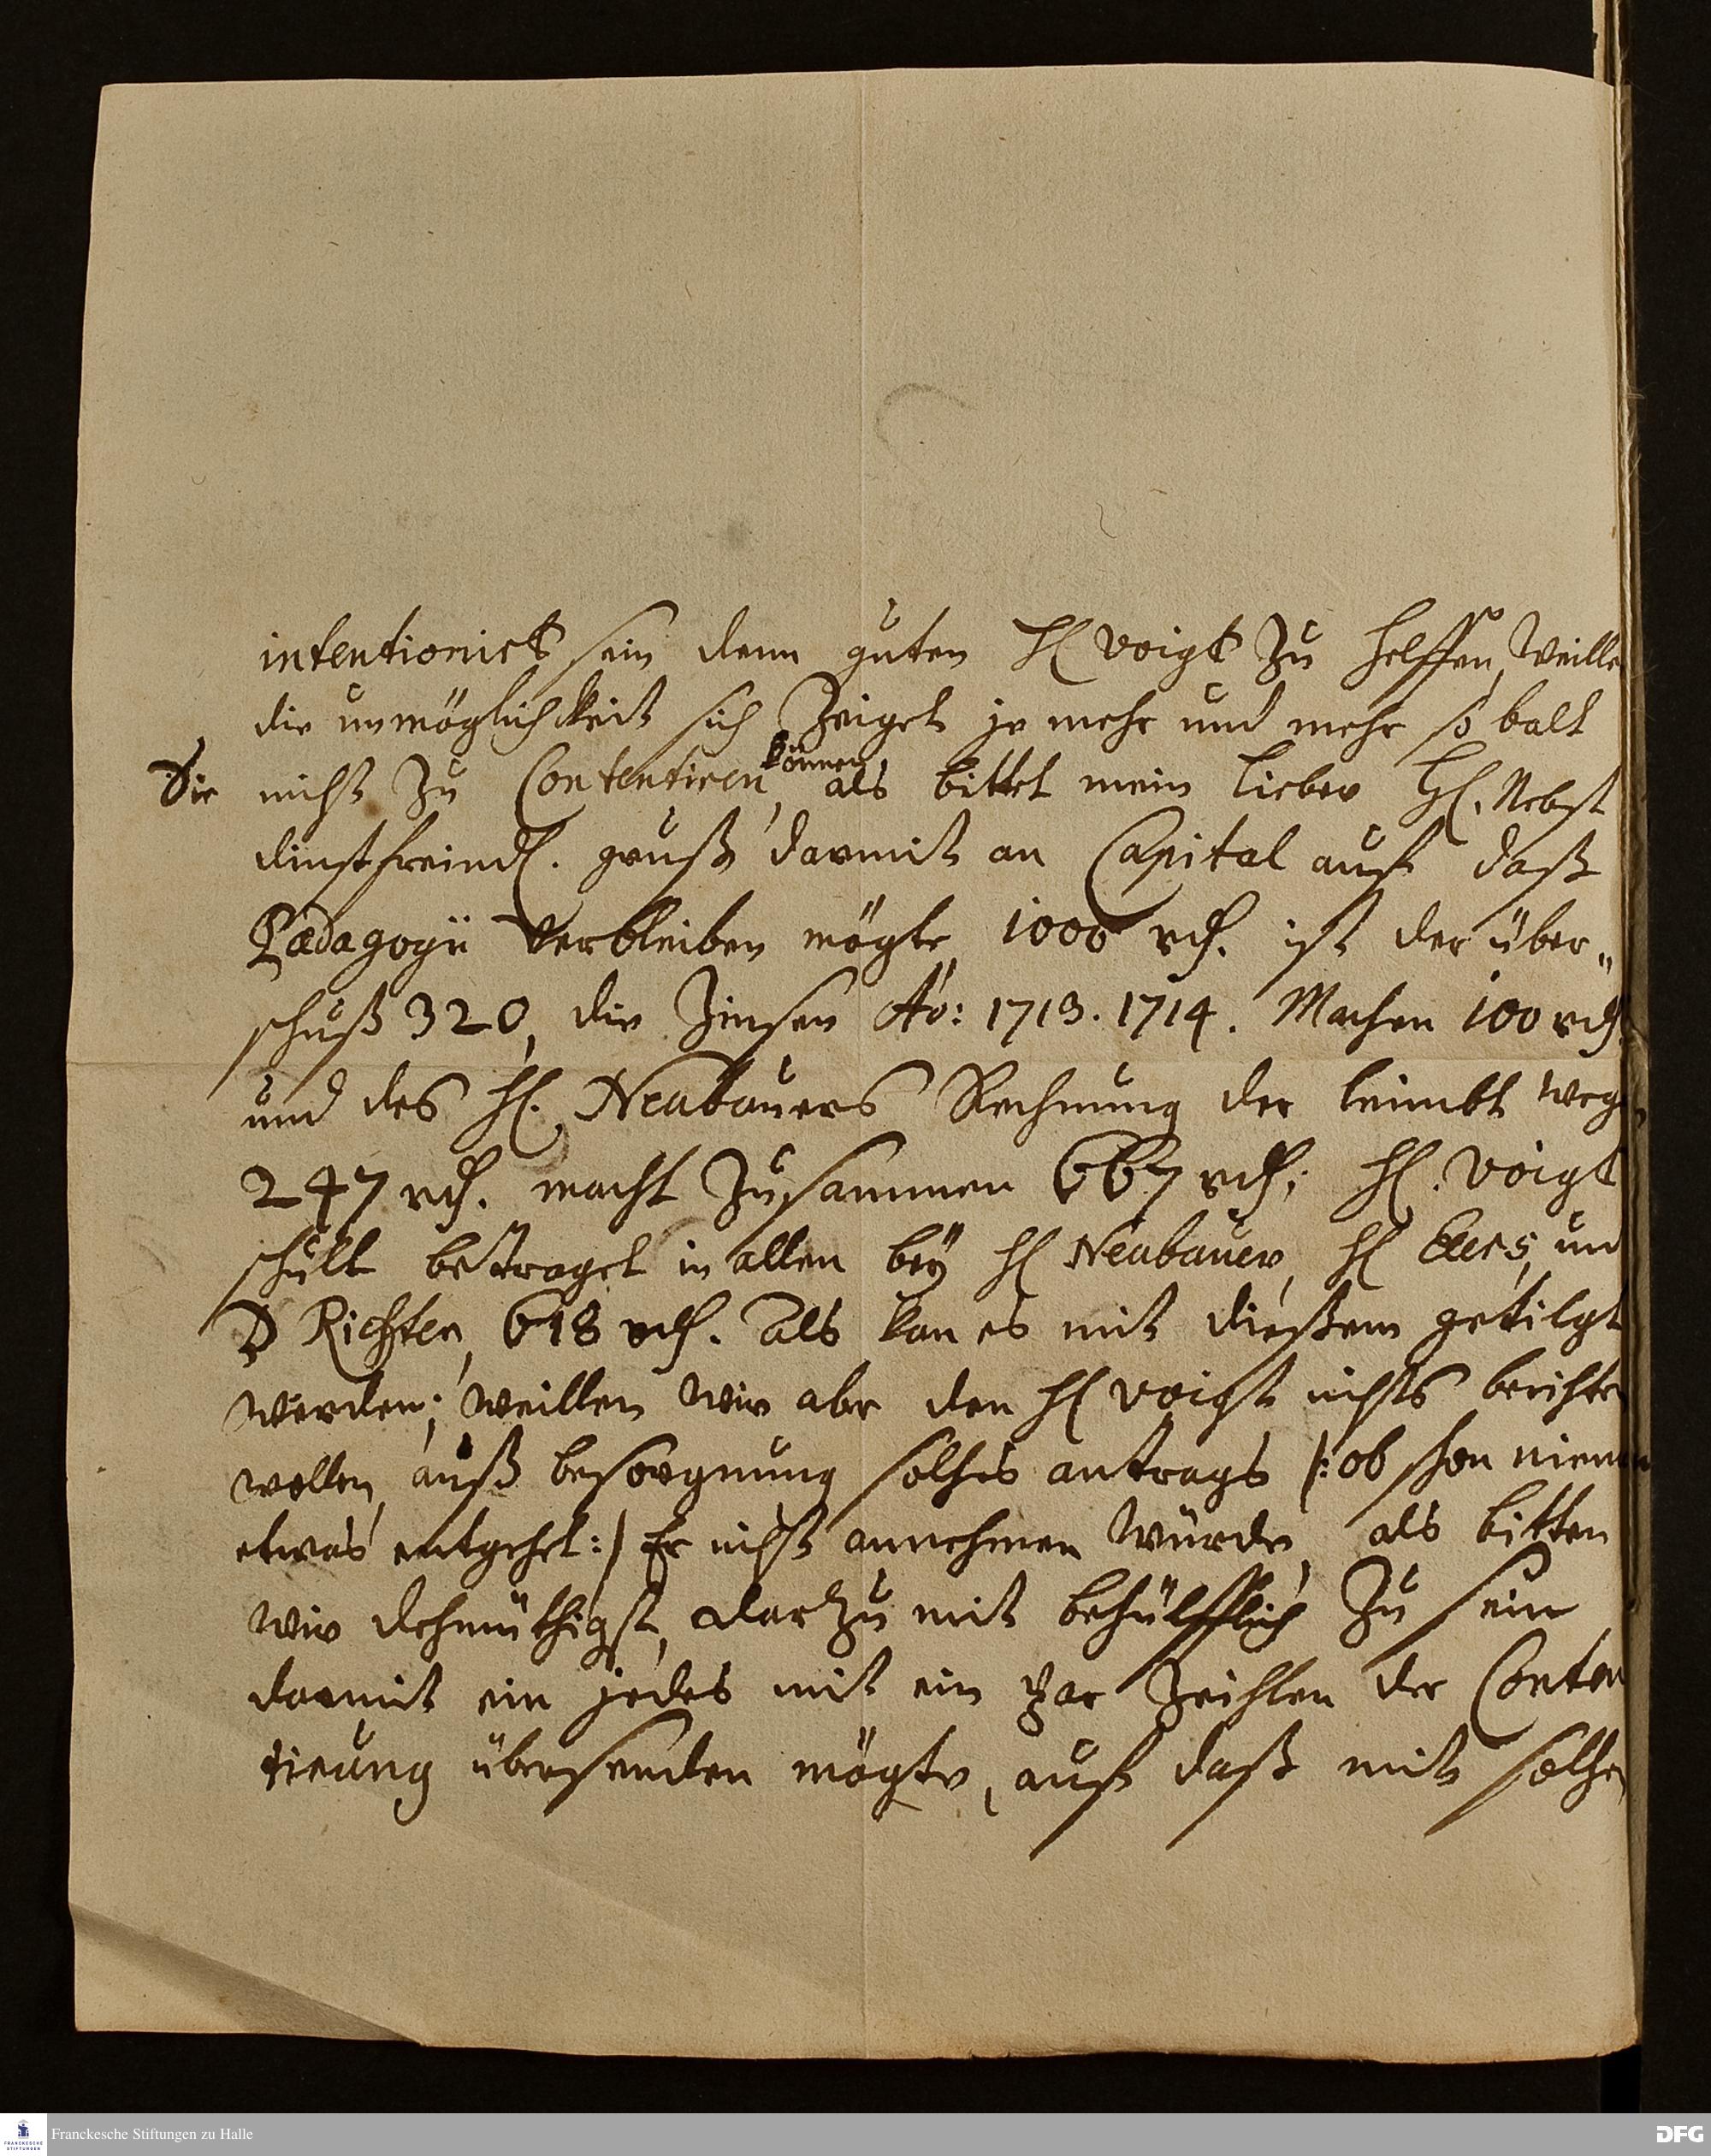 intentionirt sein denn guten H Voigt zu helffen, weille
die unmöglichkeit sich Zeiget je mehr und mehr so balt
Sie nicht zu Contentiren können, als bittet mein lieber H. Nebst
dinstfreindl. gruß darmit an Capital auf daß
Pædagogii verbleiben mögte, 1000 rth. ist der über„
schuß 320, die Zinsen Ao: 1713. 1714. Machen 100 rth
und des H. Neubauers Rechnung der leimbt weg
247 rth. macht zusammen 667 rth; H. Voigt
schult betraget in allen bey H Neubauer, H Elers, und
D Richter, 618 rth. als kan es mit dießem getilgt
werden; weillen wir aber den H Voigt nichts berichten
wollen, auß besorgnung solches antrags /: ob schon niemen
etwas entgehet :/ Er nicht annehmen würde, als bitten
wir dehmüthigst, darzu mit behülfflich zu sein
darmit ein jedes mit ein par Zeihlen der Conten
tirung übersenden mögte, auf daß mit solchen
Franckesche Stiftungen zu Halle
DFG